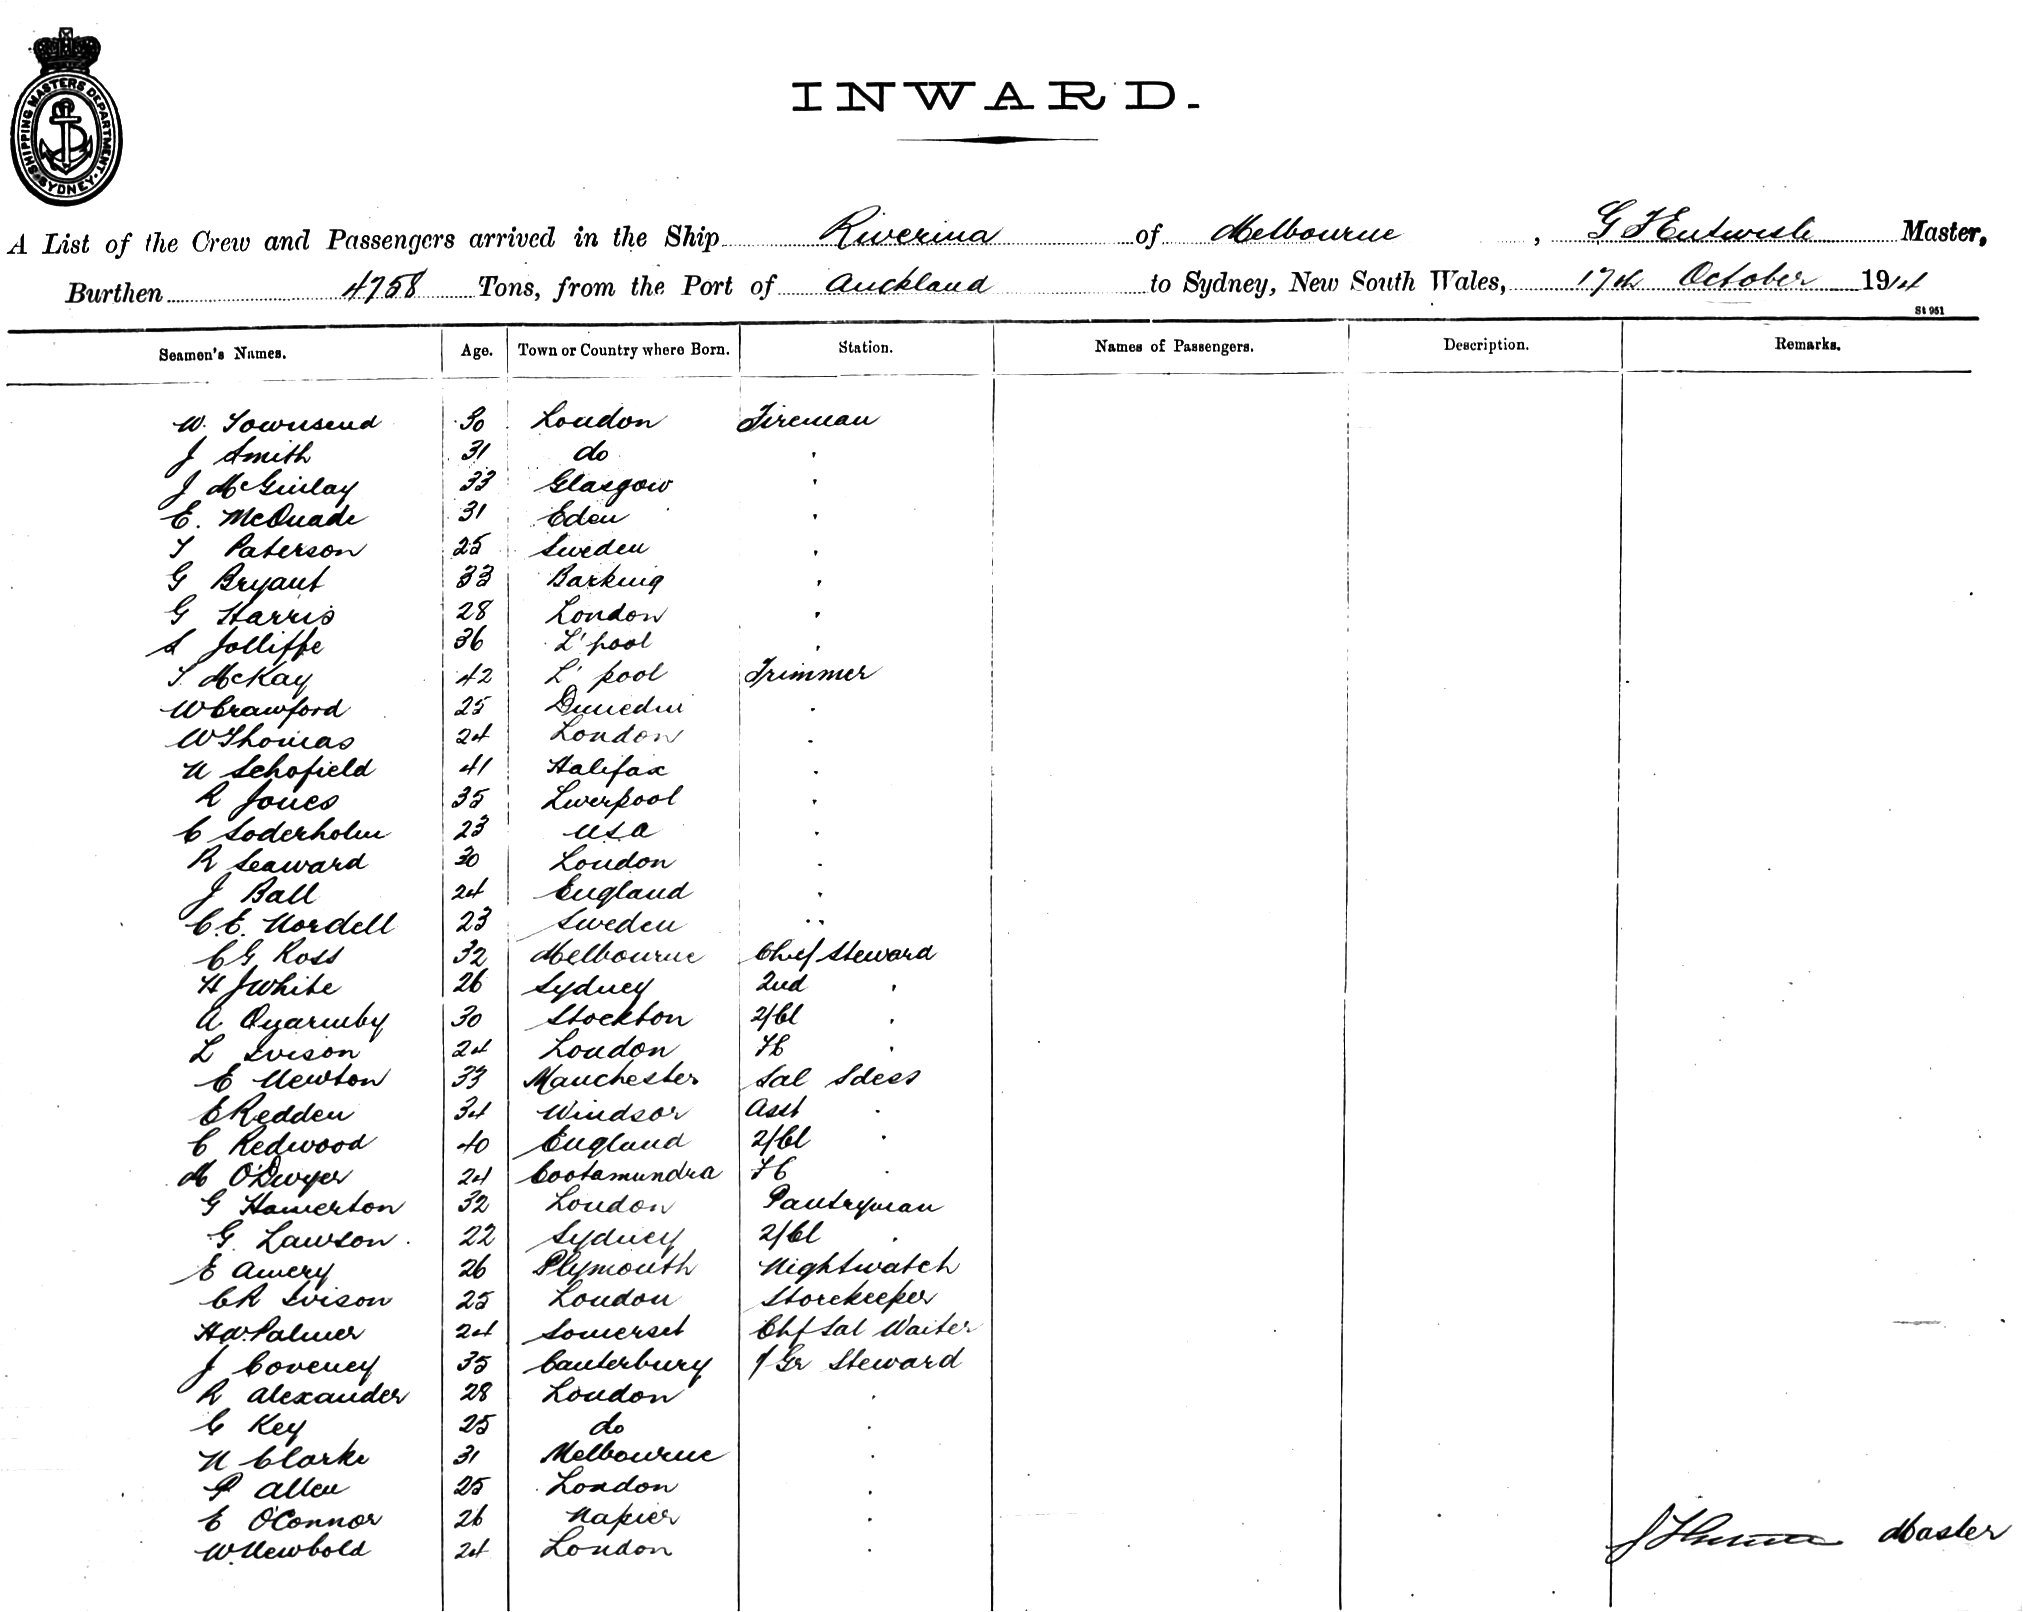 SHIPPING MASTERS DEPARTMENT. SYDNEY
INWARD.
A List of the Crew and Passengers arrived in the Ship Riverina of Melbourne, G F Entwisle Master,
Burthen 4758 Tons, from the Port of Auckland to Sydney, New South Wales, 17th October 1914
St 951
Seamen's Names. Age. Town or Country where Born. Station. Names of Passengers. Description. Remarks.
W. Townsend 30 London Fireman
J Smith 31 do "
J McGinlay 33 Glasgow "
E. McQuade 31 Eden "
T Paterson 25 Sweden "
G Bryant 33 Barking "
G Harris 28 London "
S Jolliffe 36 L'pool "
T. McKay 42 L'pool Trimmer
W Crawford 25 Dunedin "
W Thomas 24 London "
N Schofield 41 Halifax "
R Jones 35 Liverpool "
C Soderholm 23 USA "
R Seaward 30 London "
J Ball 24 England "
C.E. Nordell 23 Sweden "
C G Ross 32 Melbourne Chief Steward
H J White 26 Sydney 2nd "
A Quarmby 30 Stockton 2/Cl "
L Ivison 24 London FC "
E Newton 33 Manchester Sal Sdess
E Redden 34 Windsor Asst "
C Redwood 40 England 2/Cl "
M O'Dwyer 24 Cootamundra FC "
G Hamerton 32 London Pantryman
G. Lawson 22 Sydney 2/Cl "
E Amery 26 Plymouth Nightwatch
C R Ivison 25 London Storekeeper
H W. Palmer 24 Somerset Chf Sal Waiter
J Coveney 35 Canterbury f Gr Steward
R Alexander 28 London "
G Key 25 do "
N Clarke 31 Melbourne "
P Allen 25 London "
E O'Connor 26 Napier "
W. Newbold 24 London "
Master